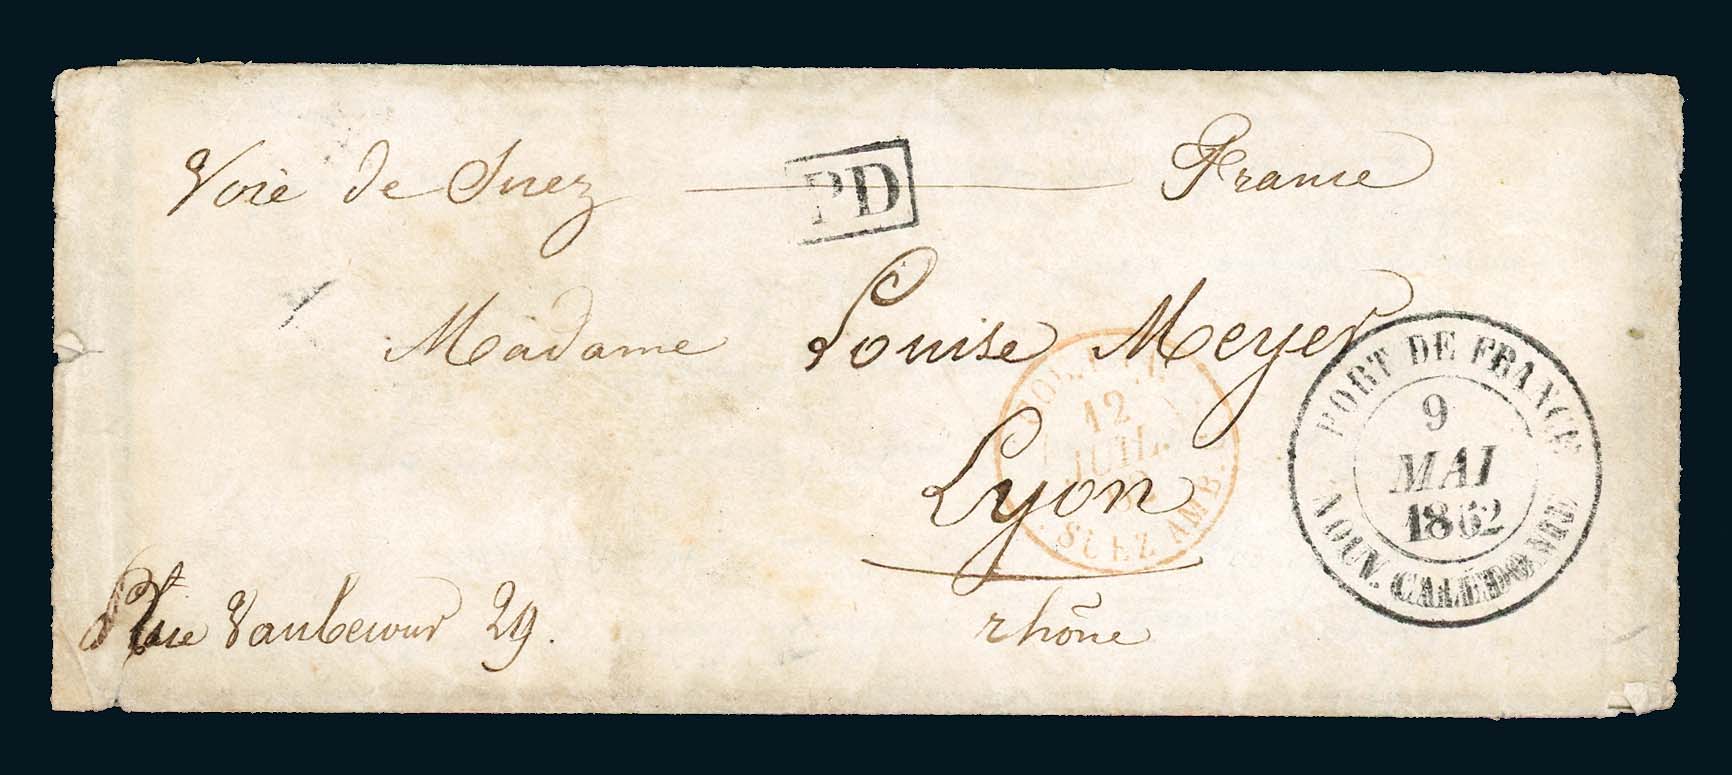 Voie de Suez — France
PD
Madame Louise Meyer
Lyon
rhône
Rue Vaubecour 29.
PORT DE FRANCE
9
MAI
1862
NOUV. CALEDONIE
12
JUIL.
SUEZ AMB.